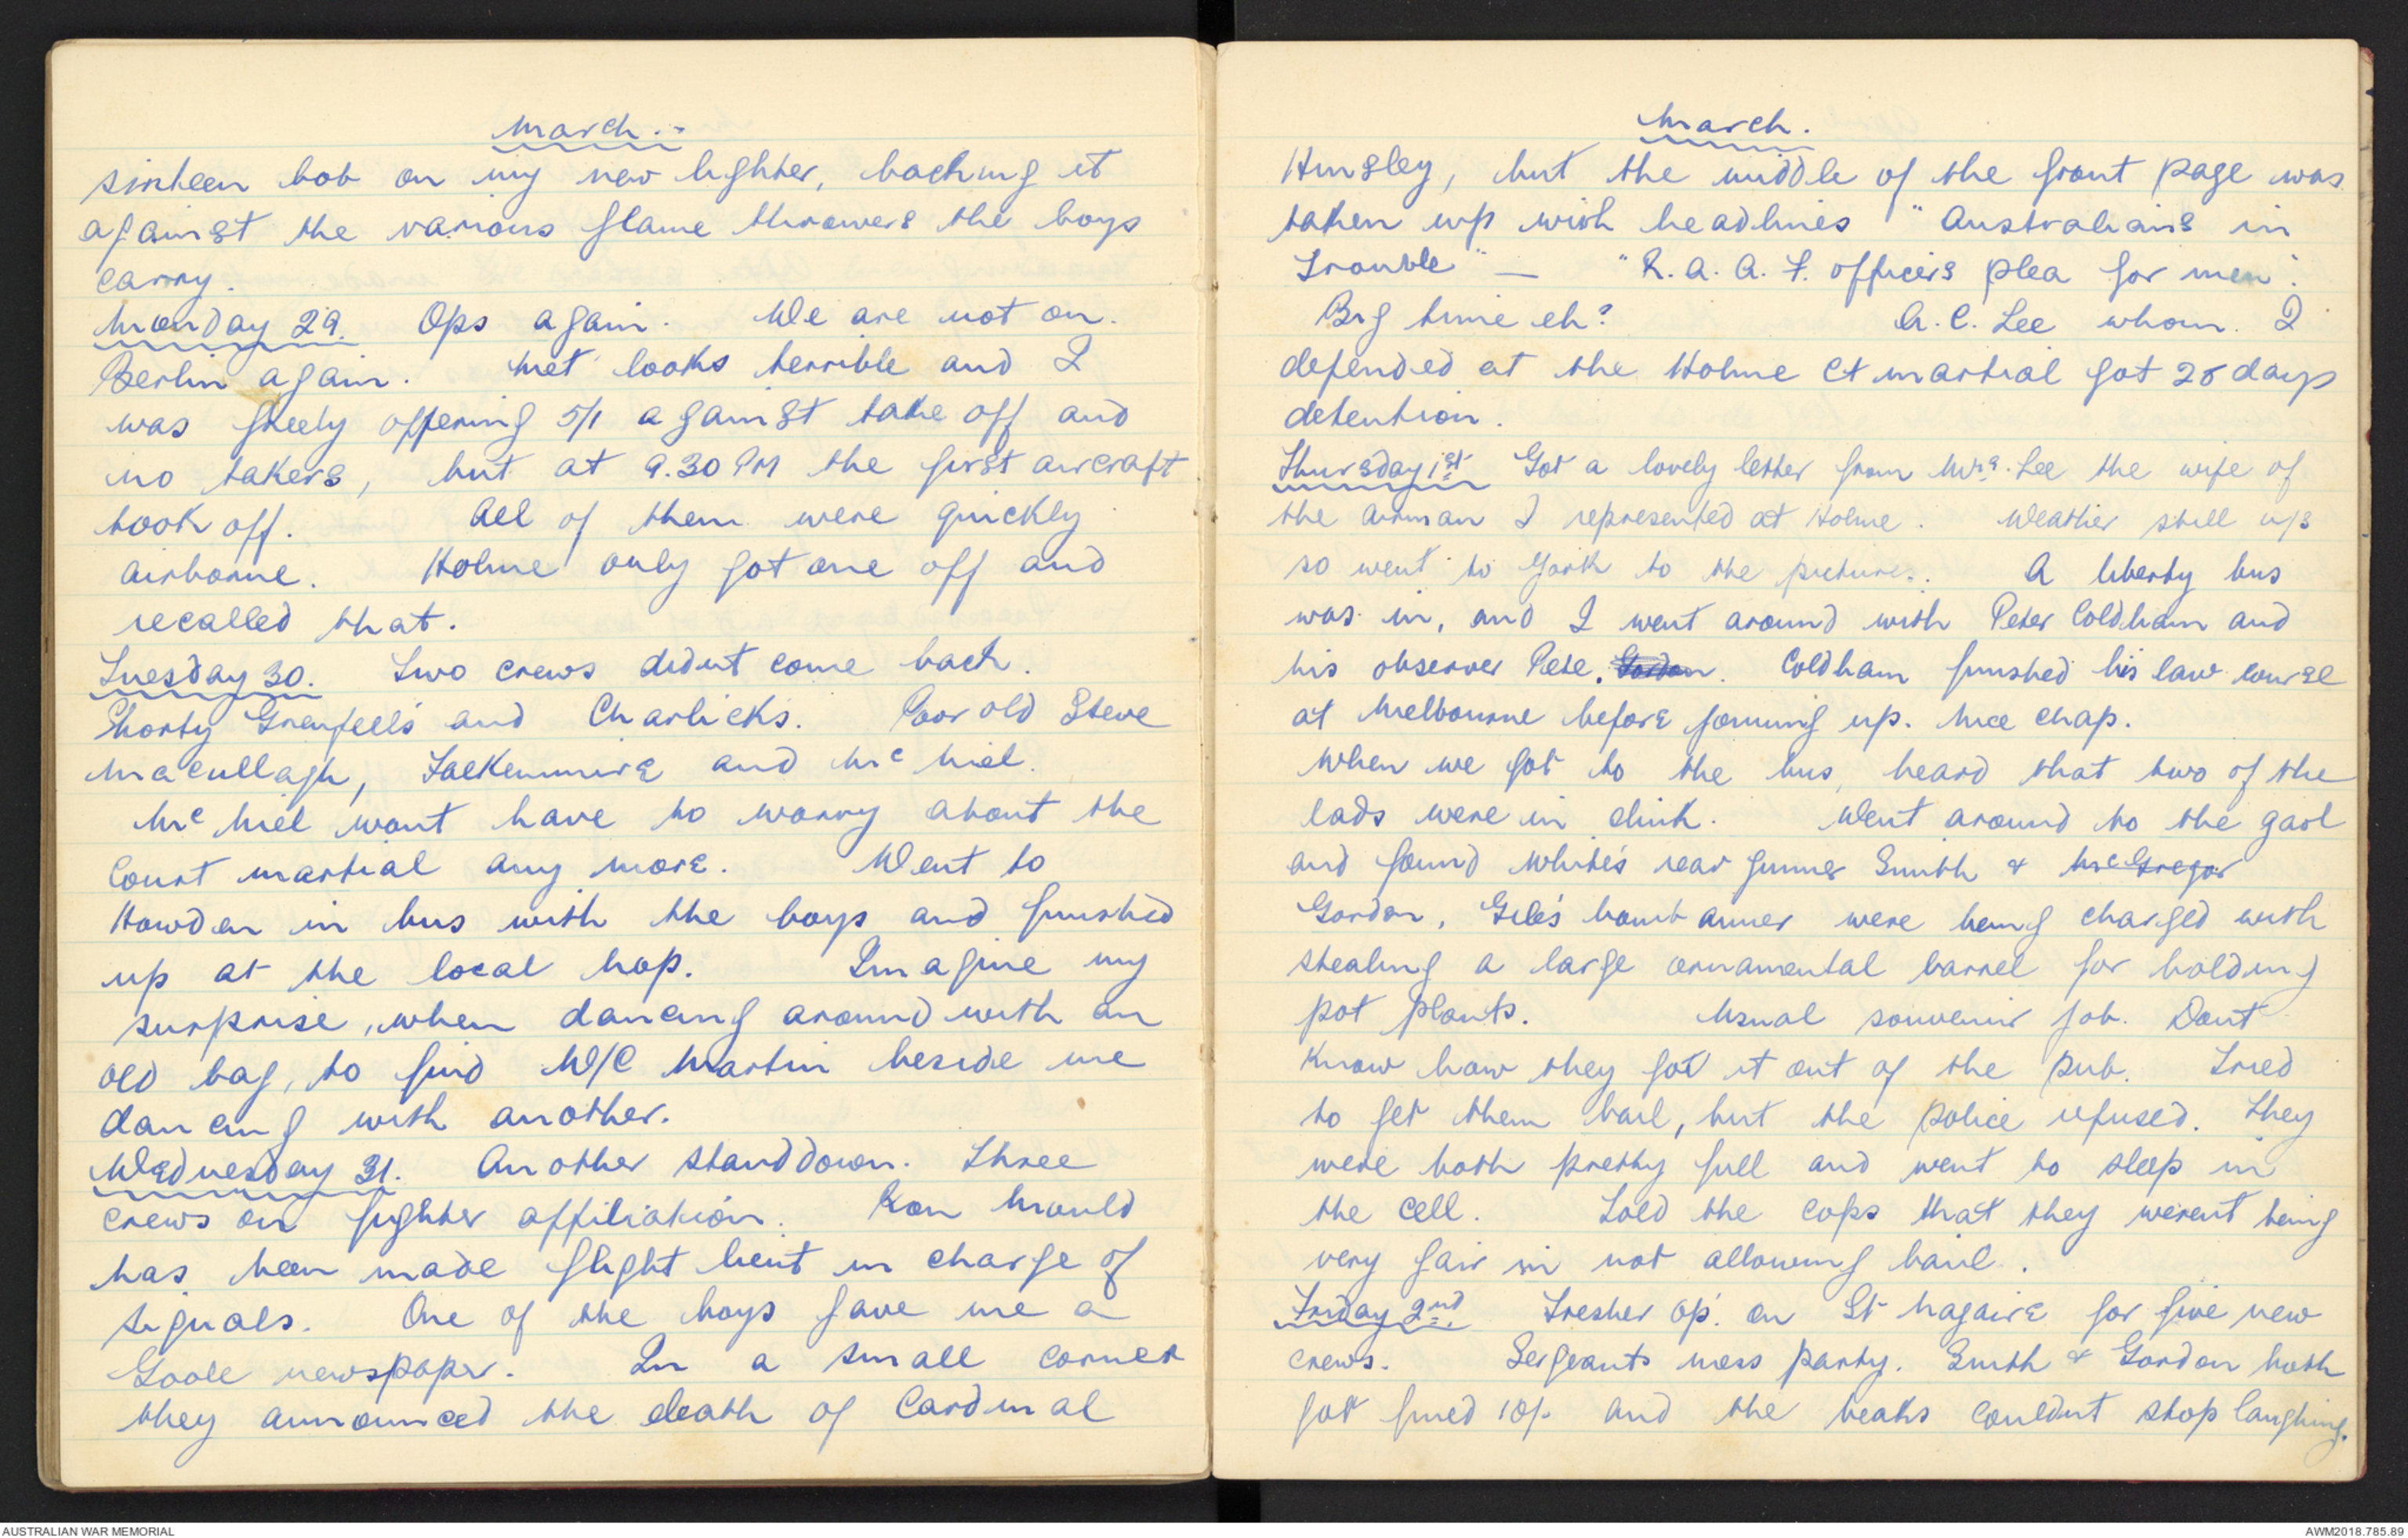 March.-
sixteen bob on my new lighter, backing it
against the various flame throwers the boys
carry.
Monday 29. Ops again. We are not on.
Berlin again. Met looks terrible and I
was freely offering 5/1 against take off and
no takers, but at 9.30 PM the first aircraft
took off. All of them were quickly
airborne. Holme only got one off and
recalled that.
Tuesday 30. Two crews didnt come back.
Shorty Grenfell's and Charlicks. Poor old Steve
Macullagh, Fackenmire and McNiel.
McNiel wont have to worry about the
Court martial any more. Went to
Howden in bus with the boys and finished
up at the local hop. Imagine my
surprise, when dancing around with an
old bag, to find W/C Martin beside me
dancing with another.
Wednesday 31. Another stand down. Three
crews on fighter affiliation. Ron Mould
has been made flight lieut in charge of
signals. One of the boys gave me a
Goole newspaper. In a small corner
they announced the death of Cardinal
March.
Hinsley, but the middle of the front page was
taken up with headlines "Australians in
Trouble" — "R.A.A.F. officers plea for men".
Big time eh? A.C. Lee whom I
defended at the Holme Ct martial got 28 days
detention.
Thursday 1st Got a lovely letter from Mrs. Lee the wife of
the airman I represented at Holme. Weather still u/s
so went to York to the pictures. A liberty bus
was in, and I went around with Peter Coldham and
his observer Pete. Gordon. Coldham finished his law course
at Melbourne before joining up. Nice chap.
When we got to the bus, heard that two of the
lads were in clink. Went around to the gaol
and found White's rear gunner Smith & McGregor
Gordon, Gile's bomb aimer were being charged with
stealing a large ornamental barrel for holding
pot plants. Usual souvenir job. Dont
know how they got it out of the pub. Tried
to get them bail, but the police refused. They
were both pretty full and went to sleep in
the cell. Told the cops that they werent being
very fair in not allowing bail.
Friday 2nd. Fresher op. on St Nazaire for five new
crews. Sergeants mess party. Smith & Gordon both
got fined 10/- and the beaks couldnt stop laughing.
AUSTRALIAN WAR MEMORIAL
AWM2018.785.89